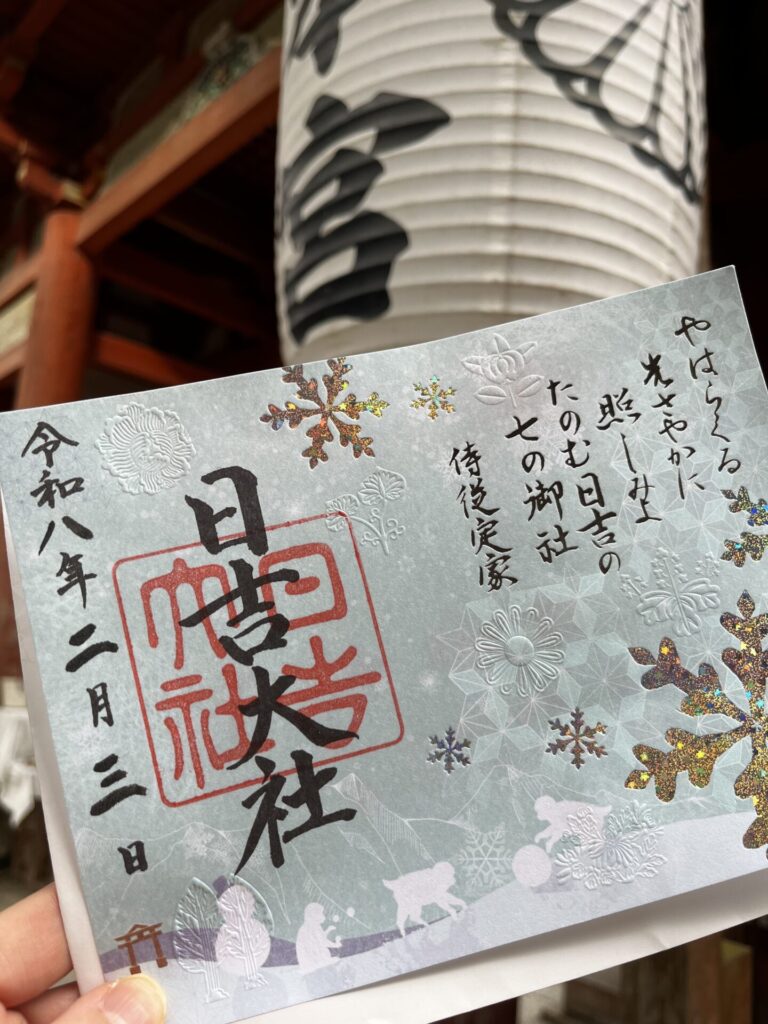 宮
やはらくる
光さやかに
照しみよ
たのむ日吉の
七の御社
侍従定家
日吉大社
日吉大社
令和八年二月三日